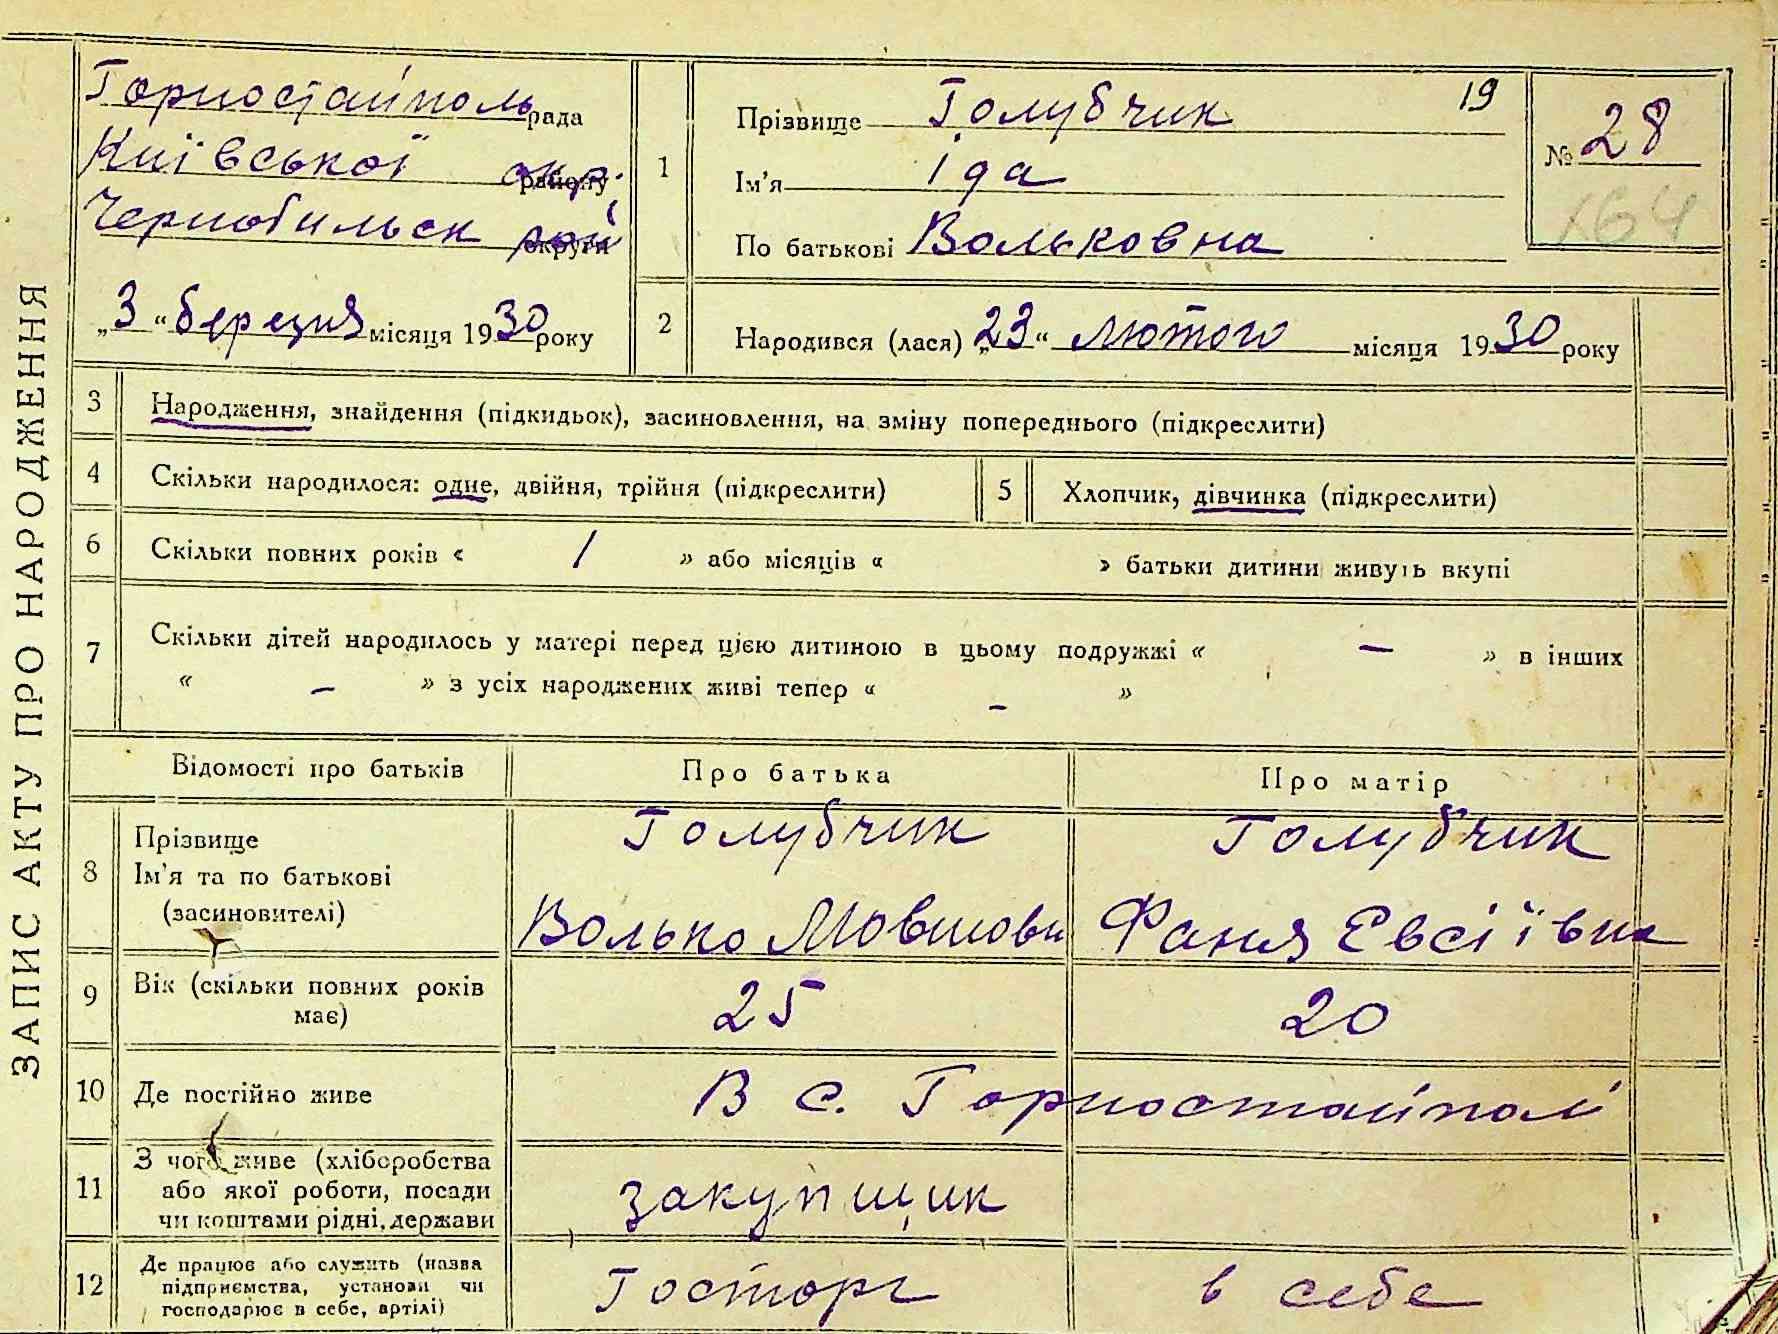 ЗАПИС АКТУ ПРО НАРОДЖЕННЯ
Горностайполь рада
Київської окр. району
Чернобильск рай округи
„3“ березня місяця 1930 року
1
Прізвище Голубчик
19
Ім'я Іда
По батькові Вольковна
№ 28
164
2
Народився (лася) „23“ лютого місяця 1930 року
3 Народження, знайдення (підкидьок), засиновлення, на зміну попереднього (підкреслити)
4 Скільки народилося: одне, двійня, трійня (підкреслити)
5 Хлопчик, дівчинка (підкреслити)
6 Скільки повних років « 1 » або місяців « » батьки дитини живуть вкупі
7 Скільки дітей народилось у матері перед цією дитиною в цьому подружжі « — » в інших
« — » з усіх народжених живі тепер « — »
Відомості про батьків Про батька Про матір
8 Прізвище
Ім'я та по батькові
(засиновителі)
Голубчик
Волько Мовшови
Голубчик
Фаня Евсіївна
9 Вік (скільки повних років
має)
25
20
10 Де постійно живе В с. Горностайполі
11 З чого живе (хліборобства
або якої роботи, посади
чи коштами рідні, держави
закупщик
12 Де працює або служить (назва
підприємства, установи чи
господарює в себе, артілі)
Госторг
в себе